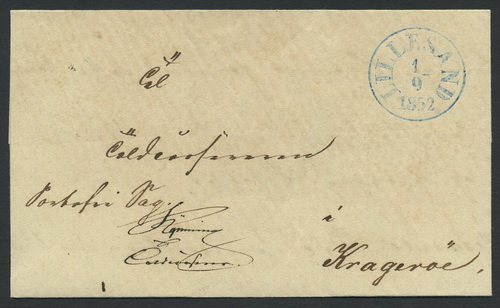 LILLESAND
1
9
1852
Til
Toldcasserernen
Portofri Sag.
i
Kragerøe.